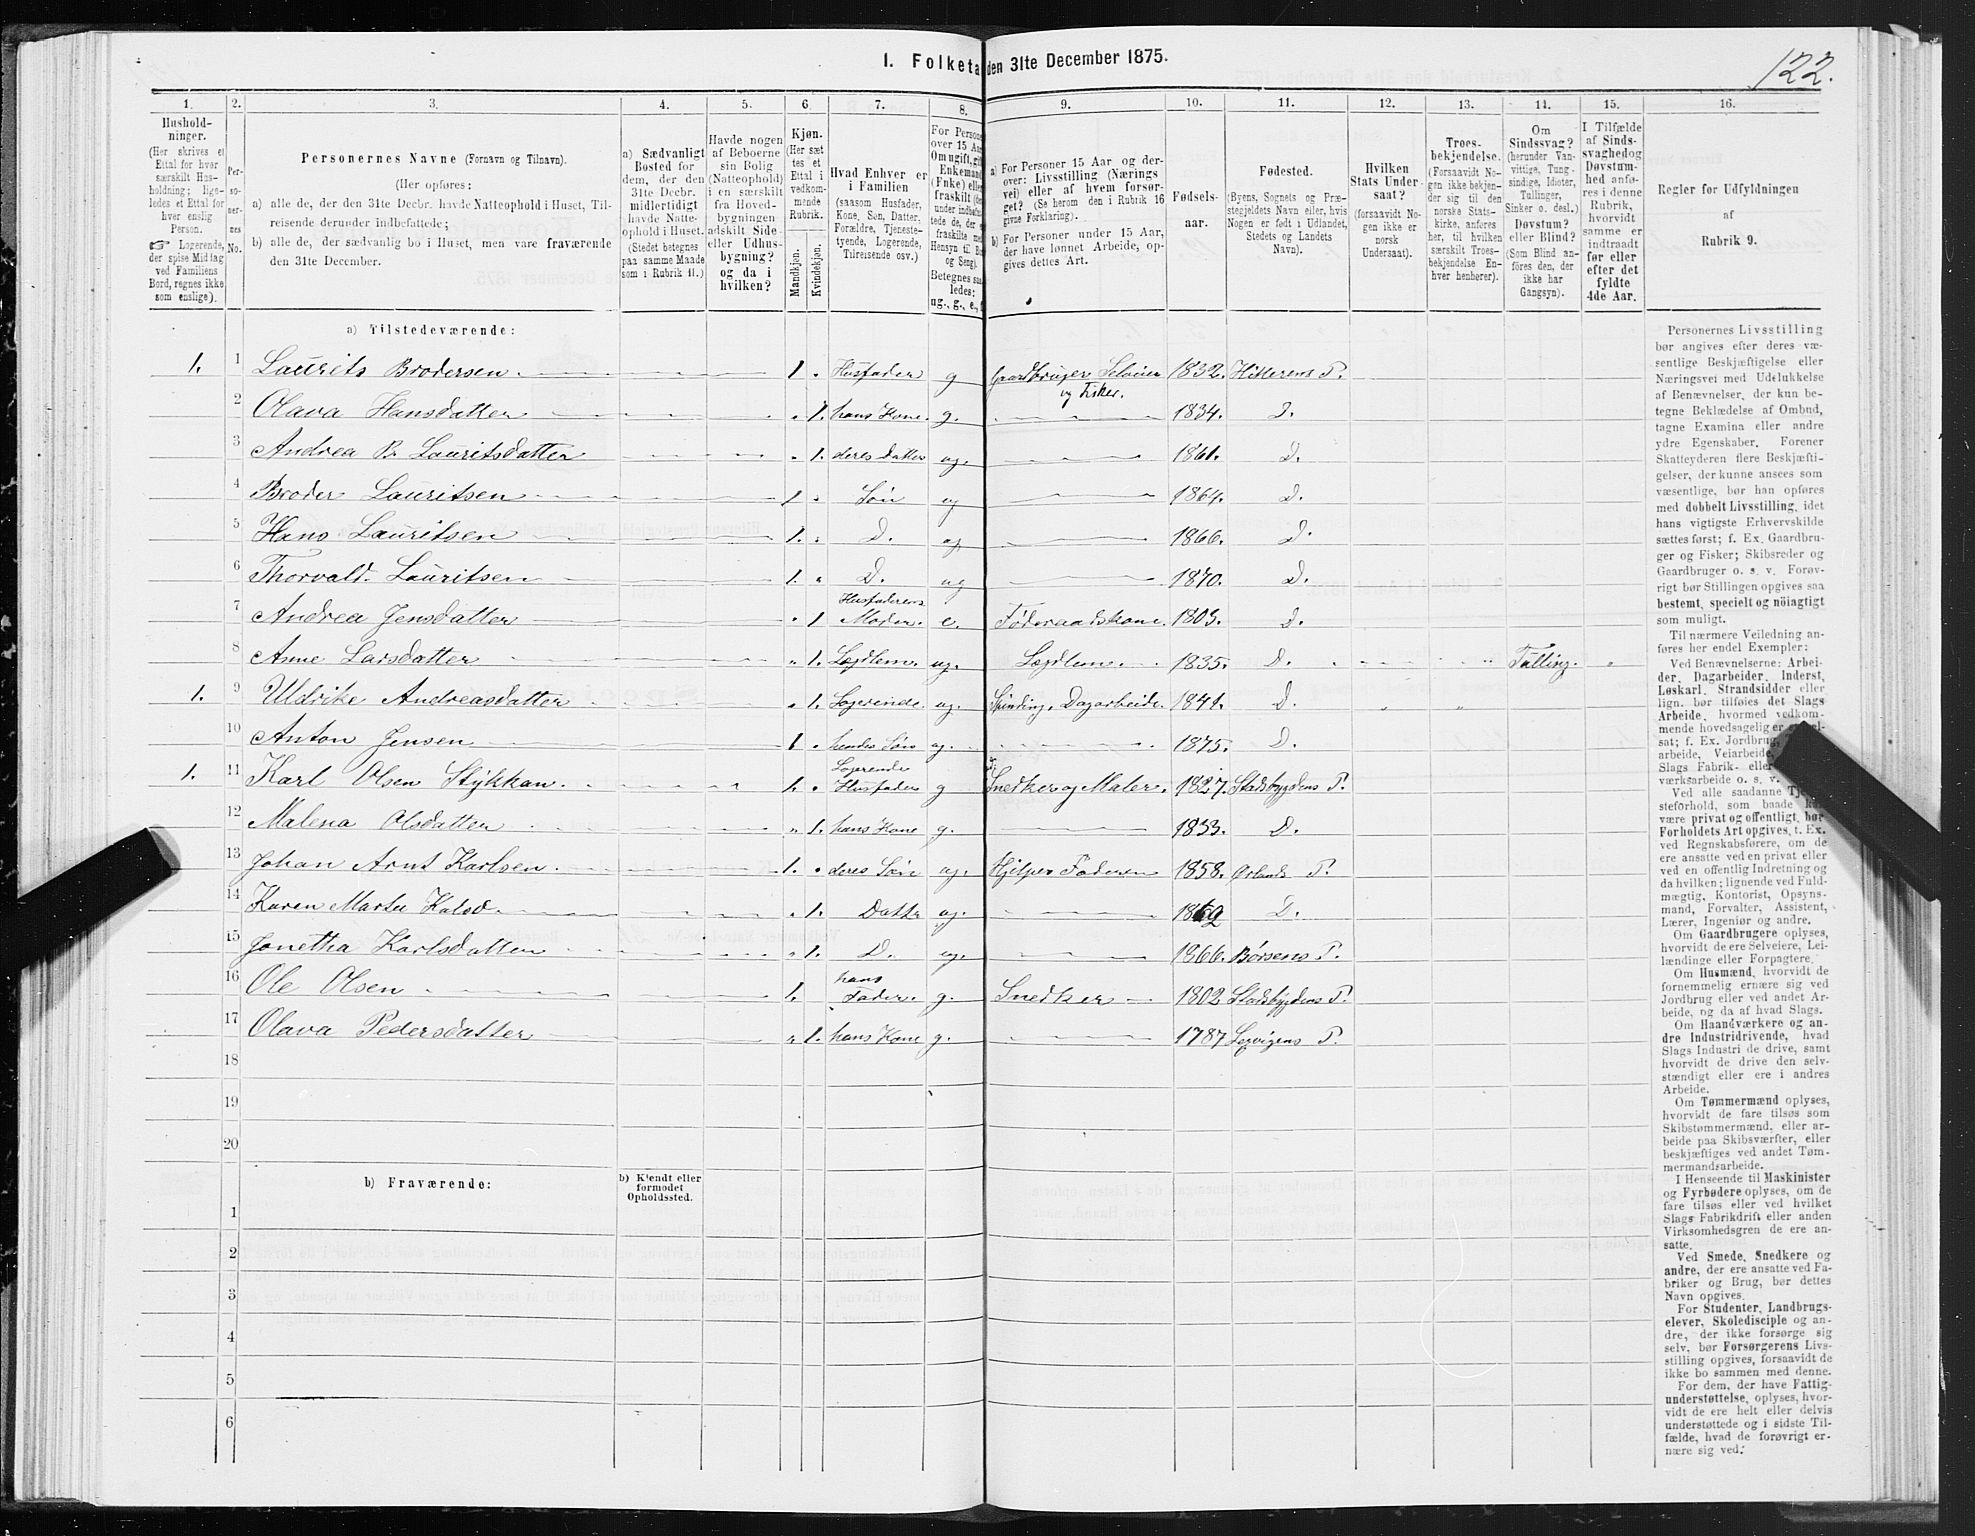 122.
I. Folketa den 31te December 1875.
1. 2. 3. 4. 5. 6. 7. 8. 9. 10. 11. 12. 13. 14. 15. 16.
Hushold-
ninger.
(Her skrives et
Ettal for hver
særskilt Hus-
holdning; lige-
ledes et Ettal for
hver enslig
Person.
☞ Logerende,
der spise Middag
ved Familiens
Bord, regnes ikke
som enslige).
Per-
so-
ner-
nes
No.
Personernes Navne (Fornavn og Tilnavn).
(Her opføres:
a) alle de, der den 31te Decbr. havde Natteophold i Huset, Til-
reisende derunder indbefattede;
b) alle de, der sædvanlig bo i Huset, men vare fraværende
den 31te December.
a) Sædvanligt
Bosted for
dem, der den
31te Decbr.
midlertidigt
havde Natte-
ophold i Huset.
(Stedet betegnes
paa samme Maade
som i Rubrik 11.)
Havde nogen
af Beboerne
sin Bolig
(Natteophold)
i en særskilt
fra Hoved-
bygningen
adskilt Side-
eller Udhus-
bygning?
og da i
hvilken?
Kjøn.
(Her sæt-
tes et
Ettal i
vedkom-
mende
Rubrik.
Mandkjøn.
Kvindekjøn.
Hvad Enhver er
i Familien
(saasom Husfader,
Kone, Søn, Datter,
Forældre, Tjeneste-
tyende, Logerende,
Tilreisende osv.)
For Persone
over 15 Aar
Om ugift, gift
Enkemand
(Enke) elle
fraskilt
under indbefat-
tede de, der
fraskilte m
Hensyn til Bo
og Seng).
Betegnes saa
ledes:
ug., g., e.,
a) For Personer 15 Aar og der-
over: Livsstilling (Nærings
vei) eller af hvem forsør-
get? (Se herom den i Rubrik 16
givne Forklaring).
b) For Personer under 15 Aar,
der have lønnet Arbeide, op-
gives dettes Art.
Fødsels-
aar.
Fødested.
(Byens, Sognets og Præ-
stegjeldets Navn eller, hvis
Nogen er født i Udlandet,
Stedets og Landets
Navn).
Hvilken
Stats Under-
saat?
(forsaavidt No-
gen ikke er
norsk
Undersaat).
Troes-
bekjendelse.
(Forsaavidt No-
gen ikke bekjen-
der sig til den
norske Stats-
kirke, anføres
her, til hvilken
særskilt Troes-
bekjendelse En-
hver henhører).
Om
Sindssvag?
(herunder Van-
vittige, Tung-
sindige, Idioter,
Tullinger,
Sinker o. desl.)
Døvstum?
eller Blind?
(Som Blind an-
føres den, der
ikke har
Gangsyn).
I Tilfælde
af Sinds-
svaghed og
Døvstum-
hed anfø-
res i denne
Rubrik,
hvorvidt
samme er
indtraadt
før eller
efter det
fyldte
4de Aar.
Regler for Udfyldningen
af
Rubrik 9.
a) Tilstedeværende:
1. 1 Laurits Brodersen. 1. Husfader g Gaardbruger Selveier og Fisker. 1832. Hitterens P.
2 Olava Hansdatter 1. hans Kone. g. 1834. D.
3 Andrea B. Lauritsdatter 1. deres Datter ug. 1861. D.
4 Broder Lauritsen 1 Søn ug 1864. D.
5 Hans Lauritsen 1. D. ug 1866. D.
6 Thorvald Lauritsen 1. D. ug 1870. D.
7 Andrea Jensdatter 1 Husfaderens Moder. e. Føderaadskone. 1803. D.
8 Anne Larsdatter 1. Lægdlem. ug. Lægdlem. 1835. D. Tulling.
1. 9 Uldrike Andreasdatter 1. Logerende. ug. Spinding, Dagarbeide. 1841. D.
10 Anton Jensen 1 hendes Søn ug. 1875. D.
1. 11 Karl Olsen Stykkan. 1. Logerende Husfader g Snedker og Maler. 1827. Stadsbygdens P.
12 Malena Olsdatter 1. hans Kone g. 1833. D.
13 Johan Arnt Karlsen. 1. deres Søn ug. Hjelper Faderen 1858. Ørlands P.
14 Karen Marta Kalsd. 1. Dattr ug. D.
15 Jonetha Karlsdatter 1. D. ug. 1866. Børsens P.
16 Ole Olsen 1. hans Fader. g. Snedker 1802 Stadsbygdens P.
17 Olava Pedersdatter 1. hans Kone g. 1787 Lexvigens P.
18
19
20
b) Fraværende:
b) Kjendt eller
formodet
Opholdssted.
1
2
3
4
5
6
Personernes Livsstilling
bør angives efter deres væ-
sentlige Beskjæftigelse eller
Næringsvei med Udelukkelse
af Benævnelser, der kun be-
tegne Beklædelse af Ombud,
tagne Examina eller andre
ydre Egenskaber. Forener
Skatteyderen flere Beskjæfti-
gelser, der kunne ansees som
væsentlige, bør han opføres
med dobbelt Livsstilling, idet
hans vigtigste Erhvervskilde
sættes først; f. Ex. Gaardbru-
ger og Fisker; Skibsreder og
Gaardbruger o. s. v. Forøv-
rigt bør Stillingen opgives saa
bestemt, specielt og nöiagtigt
som muligt.
Til nærmere Veiledning an-
føres her endel Exempler:
Ved Benævnelserne: Arbei-
der, Dagarbeider, Inderst,
Løskarl, Strandsidder eller
lign. bør tilføies det Slags
Arbeide, hvormed vedkom-
mende hovedsagelig er
sat; f. Ex. Jordbrug,
arbeide, Veiarbeide,
Slags Fabrik- eller
værksarbeide o. s. v.
Ved alle saadanne
steforhold, som baade
være privat og offentligt, bør
Forholdets Art opgives, t. Ex.
ved Regnskabsførere, om de
ere ansatte ved en privat eller
ved en offentlig Indretning og
da hvilken; lignende ved Fuld-
mægtig, Kontorist, Opsyns-
mand, Forvalter, Assistent,
Lærer, Ingeniør og andre.
Om Gaardbrugere oplyses,
hvorvidt de ere Selveiere, Lei-
lændinge eller Forpagtere.
Om Husmænd, hvorvidt de
fornemmelig ernære sig ved
Jordbrug eller ved andet Ar-
beide, og da af hvad Slags.
Om Haandværkere og an-
dre Industridrivende, hvad
Slags Industri de drive, samt
hvorvidt de drive den selv-
stændigt eller ere i andres
Arbeide.
Om Tømmermænd oplyses,
hvorvidt de fare tilsøs som
Skibstømmermænd, eller ar-
beide paa Skibsværfter, eller
beskjæftiges ved andet Tøm-
mermandsarbeide.
I Henseende til Maskinister
og Fyrbødere oplyses, om de
fare tilsøs eller ved hvilket
Slags Fabrikdrift eller anden
Virksomhedsgren de ere an-
satte.
Ved Smede, Snedkere og
andre, der ere ansatte ved Fa-
briker og Brug, bør dettes
Navn opgives.
For Studenter, Landbrugs-
elever, Skoledisciple og an-
dre, der ikke forsørge sig
selv, bør Forsørgerens Livs-
stilling opgives, forsaavidt de
ikke bo sammen med denne.
For dem, der have Fattig-
understøttelse, oplyses, hvor-
vidt de ere helt eller delvis
understøttede og i sidste Til-
fælde, hvad de forøvrigt er-
nære sig ved.